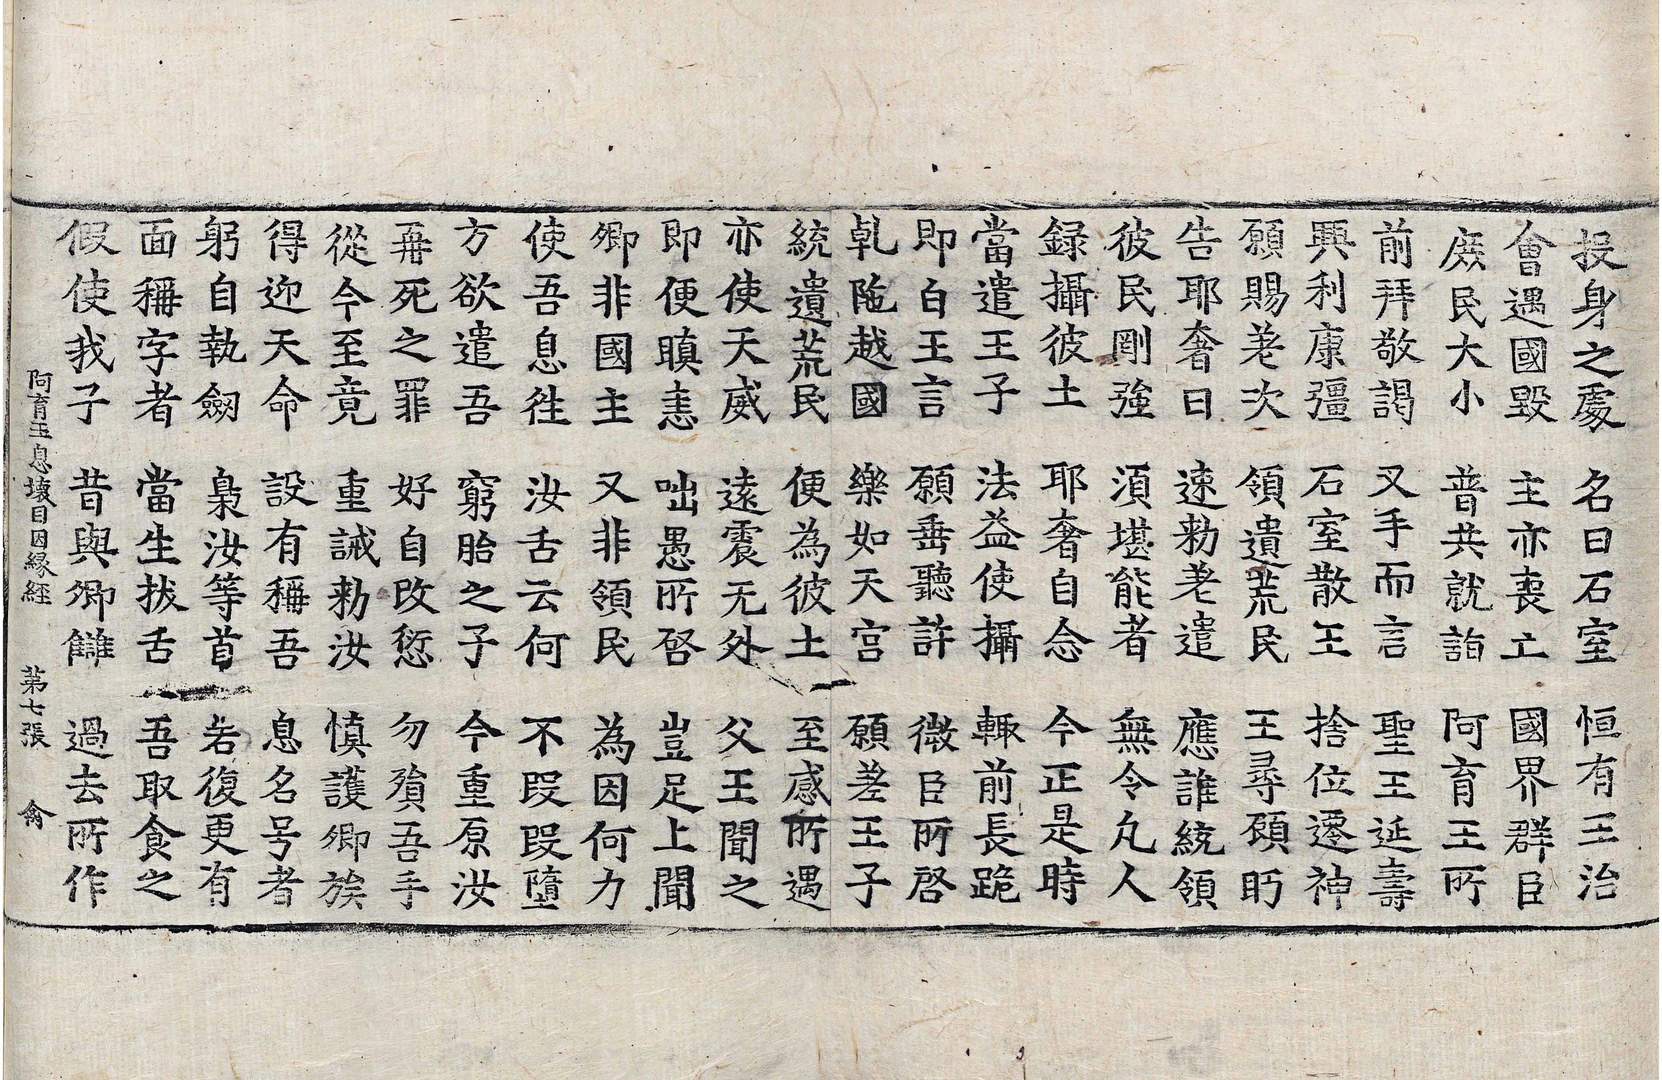 投身之處 名曰石室 恒有王治
會遇國毀 主亦喪亡 國界群臣
庶民大小 普共就詣 阿育王所
前拜敬謁 叉手而言 聖王延壽
興利康彊 石室散王 捨位遷神
願賜差次 領遺荒民 王尋顧眄
告耶奢曰 速勅差遣 應誰統領
彼民剛強 須堪能者 無令凡人
録攝彼土 耶奢自念 今正是時
當遣王子 法益使攝 輙前長跪
即白王言 願垂聽許 微臣所啓
乹陁越國 樂如天宮 願差王子
統遺荒民 便為彼土 至感所遇
亦使天威 遠震无外 父王聞之
即便瞋恚 咄愚所啓 豈足上聞
卿非國主 又非領民 為因何力
使吾息徃 汝舌云何 不段段墮
方欲遣吾 窮胎之子 今重原汝
再死之罪 好自改愆 勿殞吾手
從今至竟 重誡勅汝 慎護卿族
得迎天命 設有稱吾 息名号者
躬自執劒 梟汝等首 若復更有
面稱字者 當生拔舌 吾取食之
假使我子 昔與卿讎 過去所作
阿育王息壞目因緣經 第七張 禽